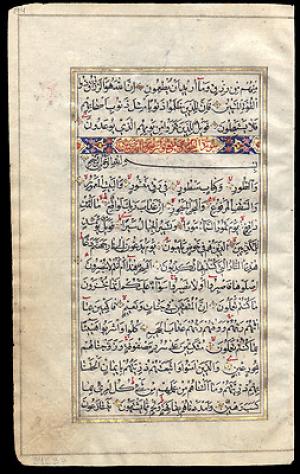 منهم من رزق وما أريد أن يطعمون إن الله هو الرزاق ذو
القوة المتين فإن للذين ظلموا ذنوبا مثل ذنوب أصحابهم
فلا يستعجلون فويل للذين كفروا من يومهم الذي يوعدون
بسم الله الرحمن الرحيم
والطور وكتاب مسطور في رق منشور والبيت المعمور
والسقف المرفوع والبحر المسجور إن عذاب ربك لواقع ما له من
دافع يوم تمور السماء مورا وتسير الجبال سيرا فويل يومئذ
للمكذبين الذين هم في خوض يلعبون يوم يدعون إلى نار جهنم دعا
هذه النار التي كنتم بها تكذبون أفسحر هذا أم أنتم لا تبصرون
اصلوها فاصبروا أو لا تصبروا سواء عليكم إنما تجزون
ما كنتم تعملون إن المتقين في جنات ونعيم فاكهين بما
آتاهم ربهم ووقاهم ربهم عذاب الجحيم كلوا واشربوا هنيئا
بما كنتم تعملون متكئين على سرر مصفوفة وزوجناهم
بحور عين والذين آمنوا واتبعتهم ذريتهم بإيمان ألحقنا
بهم ذريتهم وما ألتناهم من عملهم من شيء كل امرئ بما
كسب رهين وأمددناهم بفاكهة ولحم مما يشتهون يتنازعون